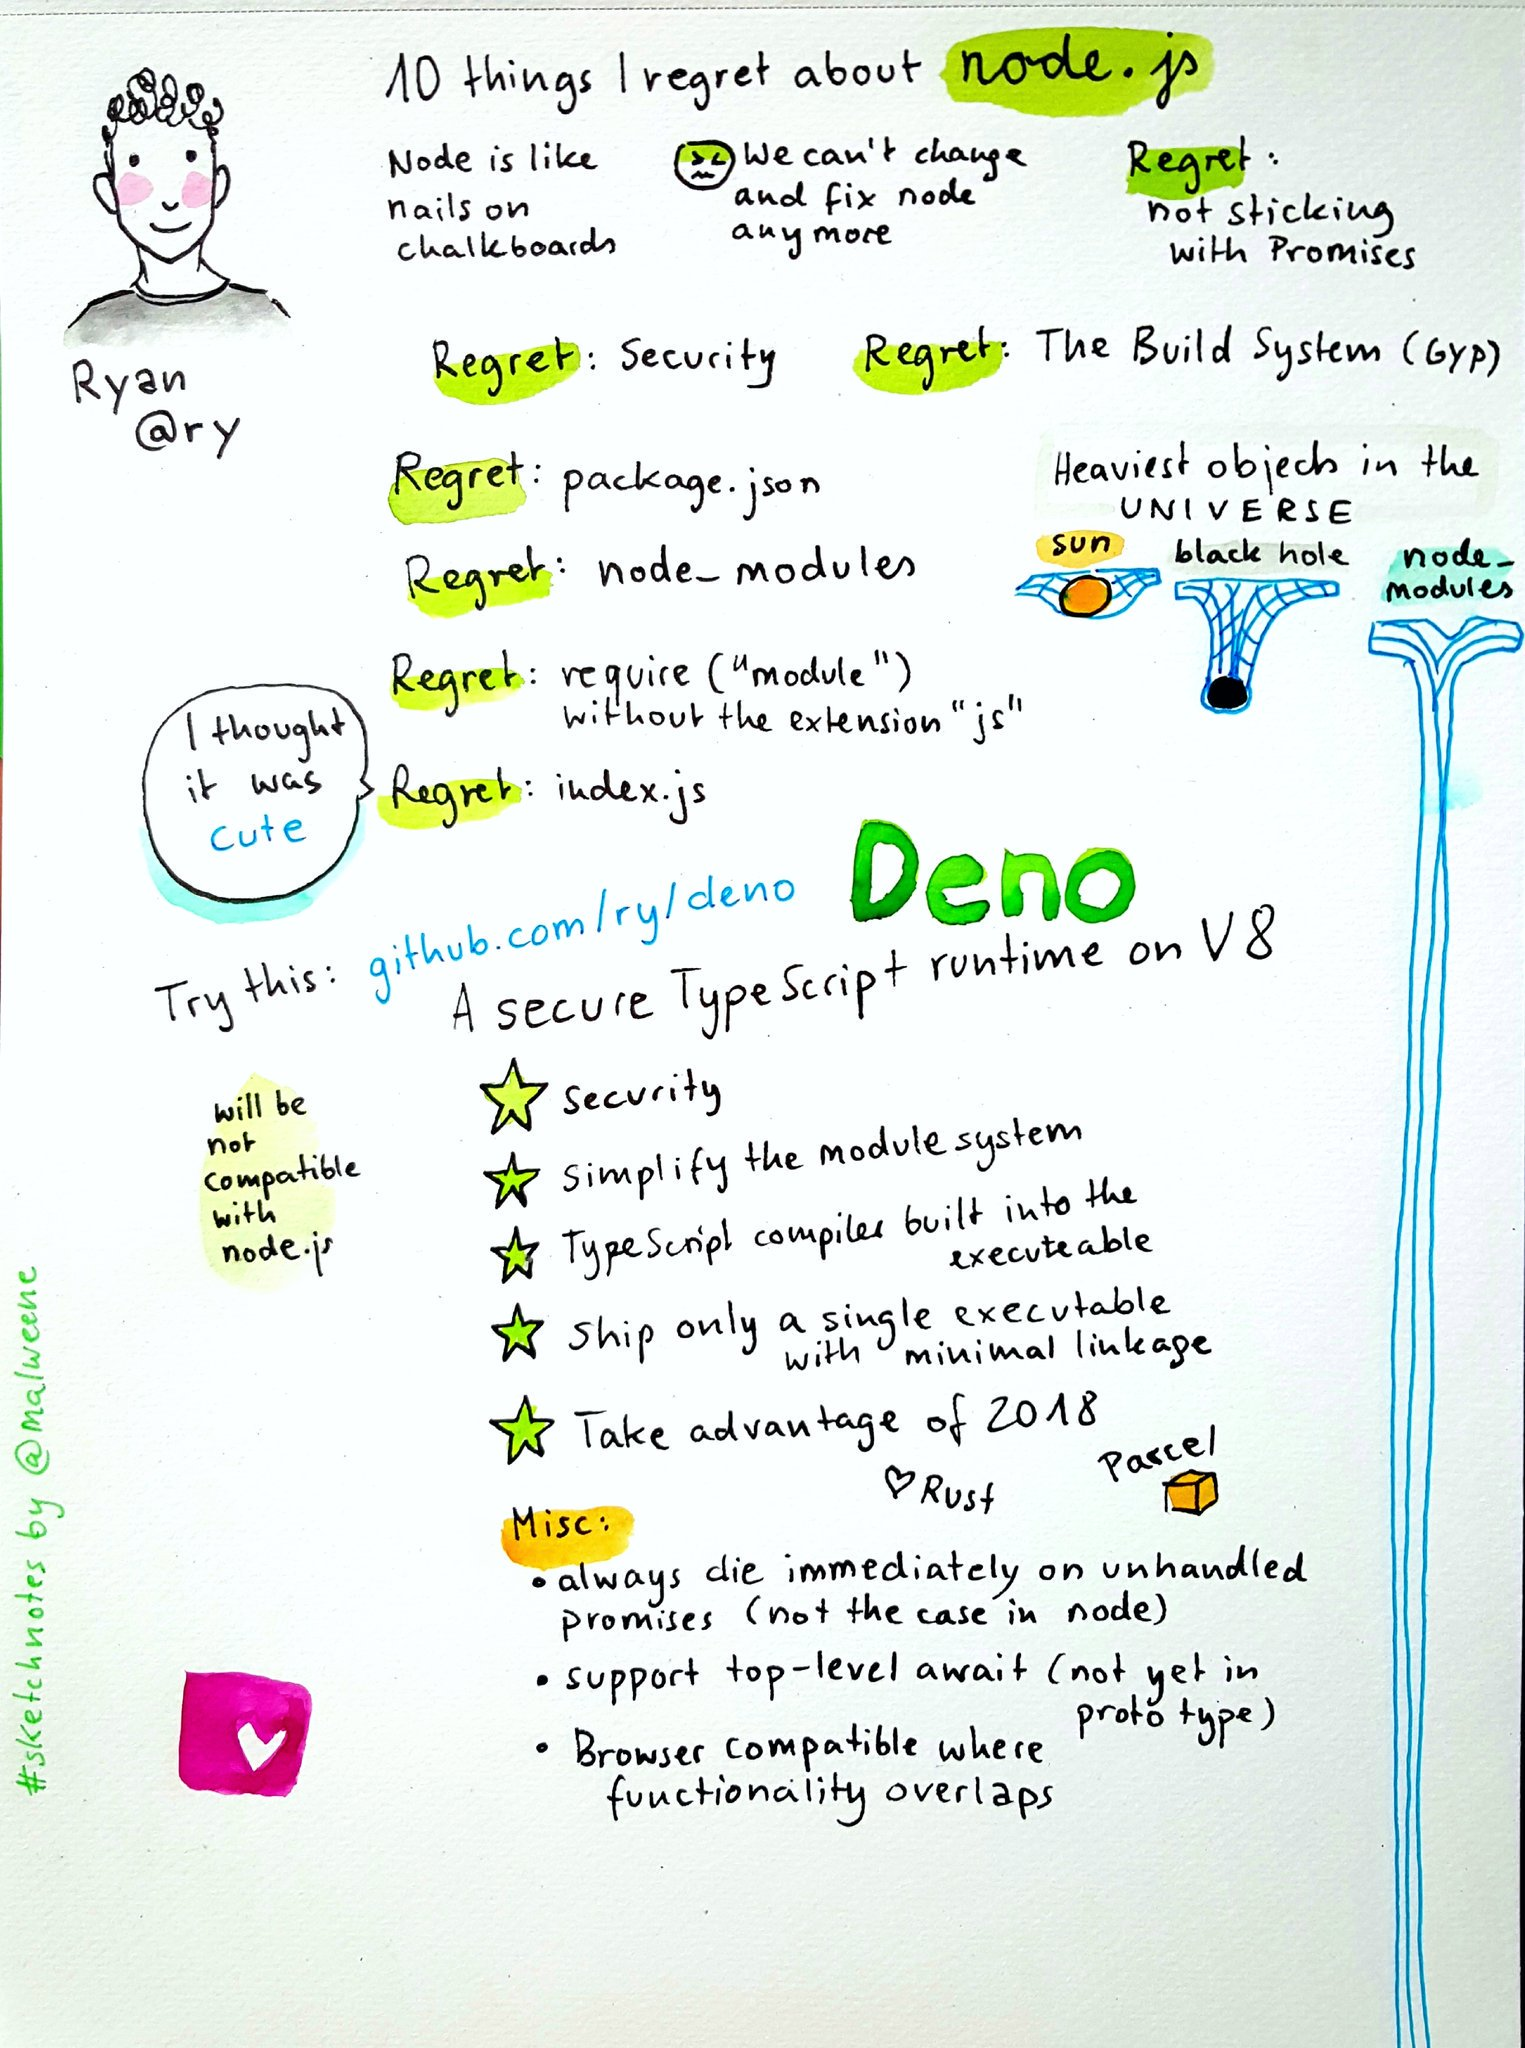 10 things I regret about node.js
Node is like
nails on
chalkboards
We can't change
and fix node
anymore
Regret:
not sticking
with Promises
Ryan
@ry
Regret: Security
Regret: The Build System (Gyp)
Regret: package.json
Heaviest objects in the
UNIVERSE
sun
black hole
node_
modules
Regret: node_modules
Regret: require ("module")
without the extension "js"
I thought
it was
cute
Regret: index.js
Deno
Try this: github.com/ry/deno
A secure TypeScript runtime on V8
will be
not
compatible
with
node.js
security
simplify the module system
TypeScript compiler built into the
executeable
ship only a single executable
with minimal linkage
Take advantage of 2018
Rust
Parcel
Misc:
• always die immediately on unhandled
promises (not the case in node)
• support top-level await (not yet in
prototype)
• Browser compatible where
functionality overlaps
#sketchnotes by @malweene